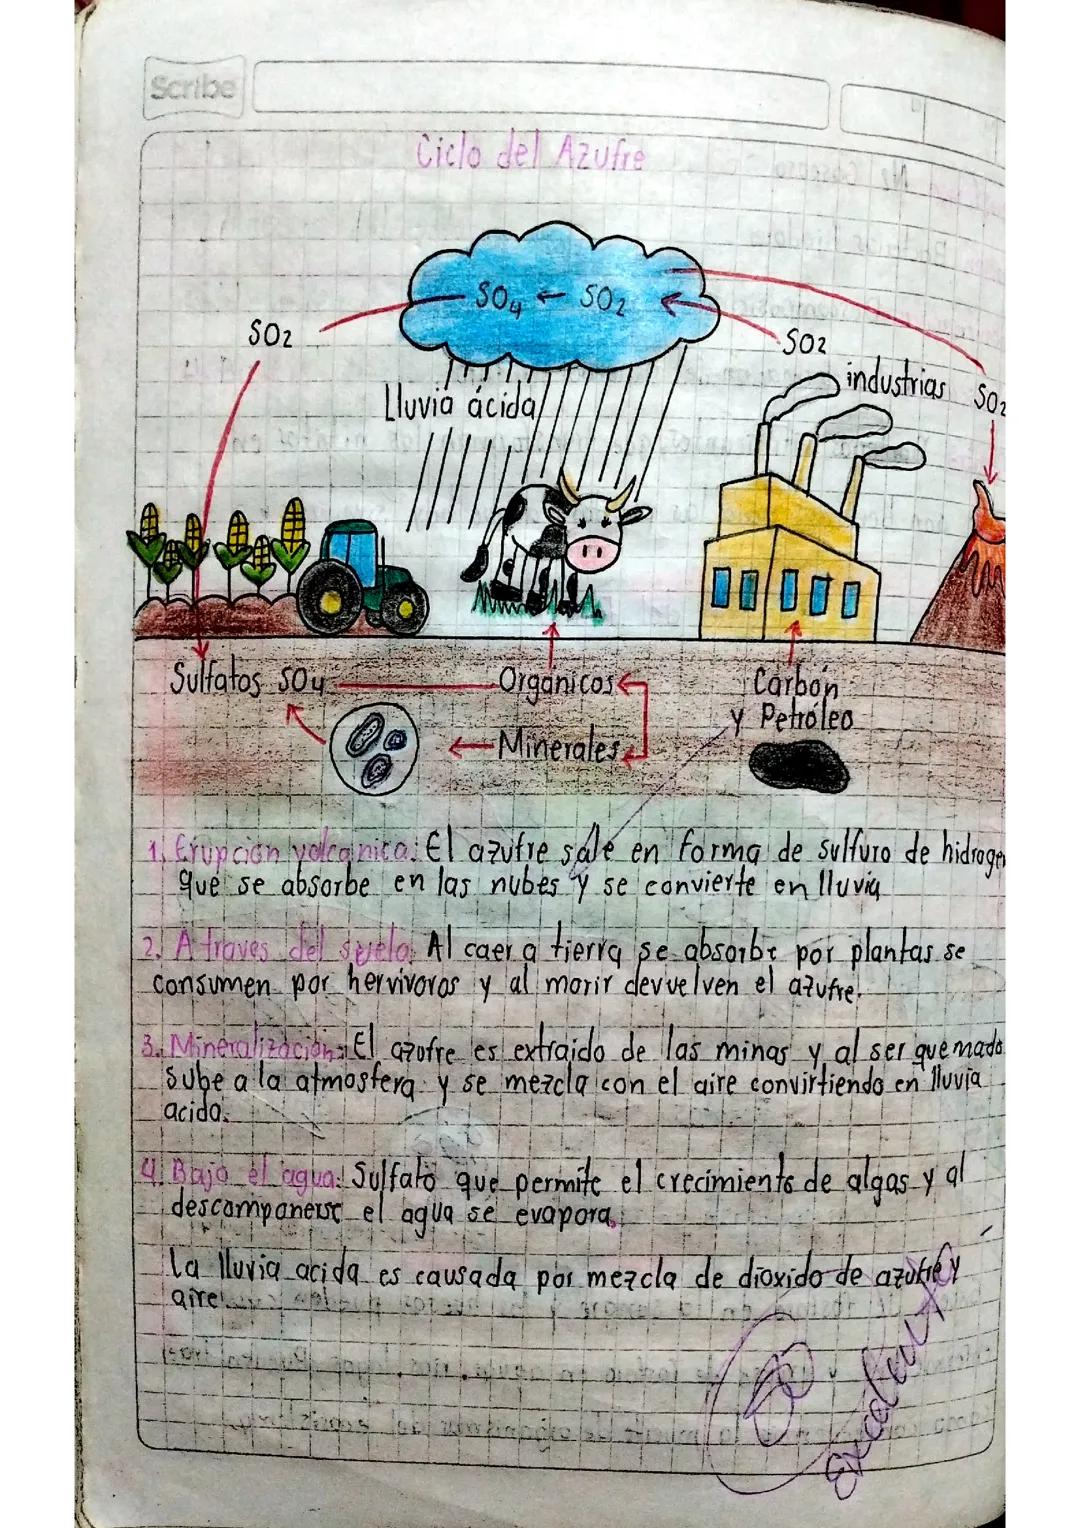 Scribe
Ciclo del Azufre
SO4 ← SO2
SO2
SO2
industrias
SO2
Lluvia ácida
Sulfatos SO4
Orgánicos
Carbón
y Petróleo
Minerales
1. Erupción volcanica: El azufre sale en forma de sulfuro de hidrogen
que se absorbe en las nubes y se convierte en lluvia
2. A traves del suelo: Al caer a tierra se absorbe por plantas se
consumen por hervivoros y al morir devuelven el azufre.
3. Mineralización: El azufre es extraido de las minas y al ser quemado
sube a la atmosfera y se mezcla con el aire convirtiendo en lluvia
acida.
4. Bajo el agua: Sulfato que permite el crecimiento de algas y al
descomponerse el agua se evapora.
La lluvia acida es causada por mezcla de dioxido de azufre y
aire